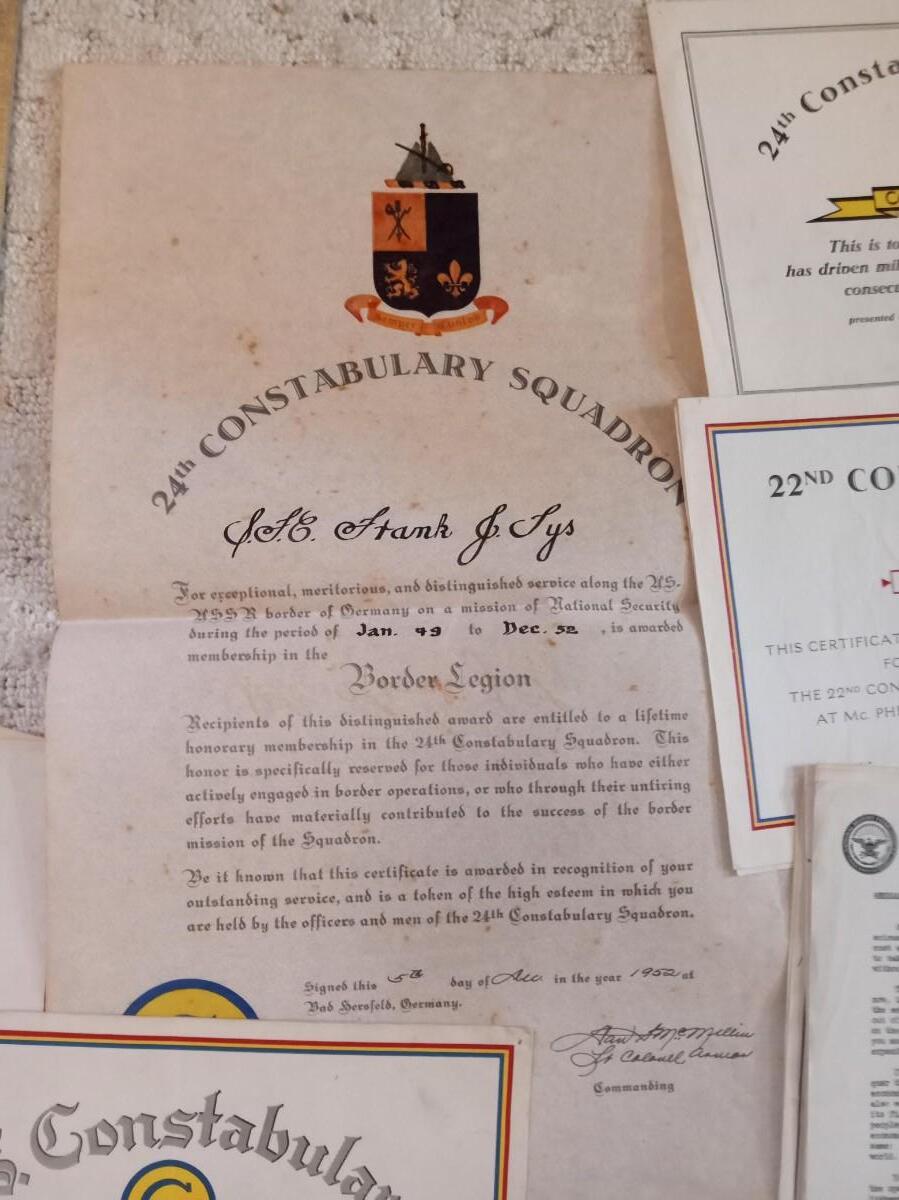 24th CONSTABULARY SQUADRON
Frank J. Sys
For exceptional, meritorious, and distinguished service along the US.
USSR border of Germany on a mission of National Security
during the period of Jan. 49 to Dec. 52 , is awarded
membership in the
Border Legion
Recipients of this distinguished award are entitled to a lifetime
honorary membership in the 24th Constabulary Squadron. This
honor is specifically reserved for those individuals who have either
actively engaged in border operations, or who through their untiring
efforts have materially contributed to the success of the border
mission of the Squadron.
Be it known that this certificate is awarded in recognition of your
outstanding service, and is a token of the high esteem in which you
are held by the officers and men of the 24th Constabulary Squadron.
Signed this 5th day of Dec. in the year 1952 at
Bad Hersfeld, Germany.
Lt Colonel Armor
Commanding
24th Consta
This is to
has driven mil
consec
presented
22ND CO
THIS CERTIFICAT
FO
THE 22ND CON
AT Mc. PH
S. Constabular
C